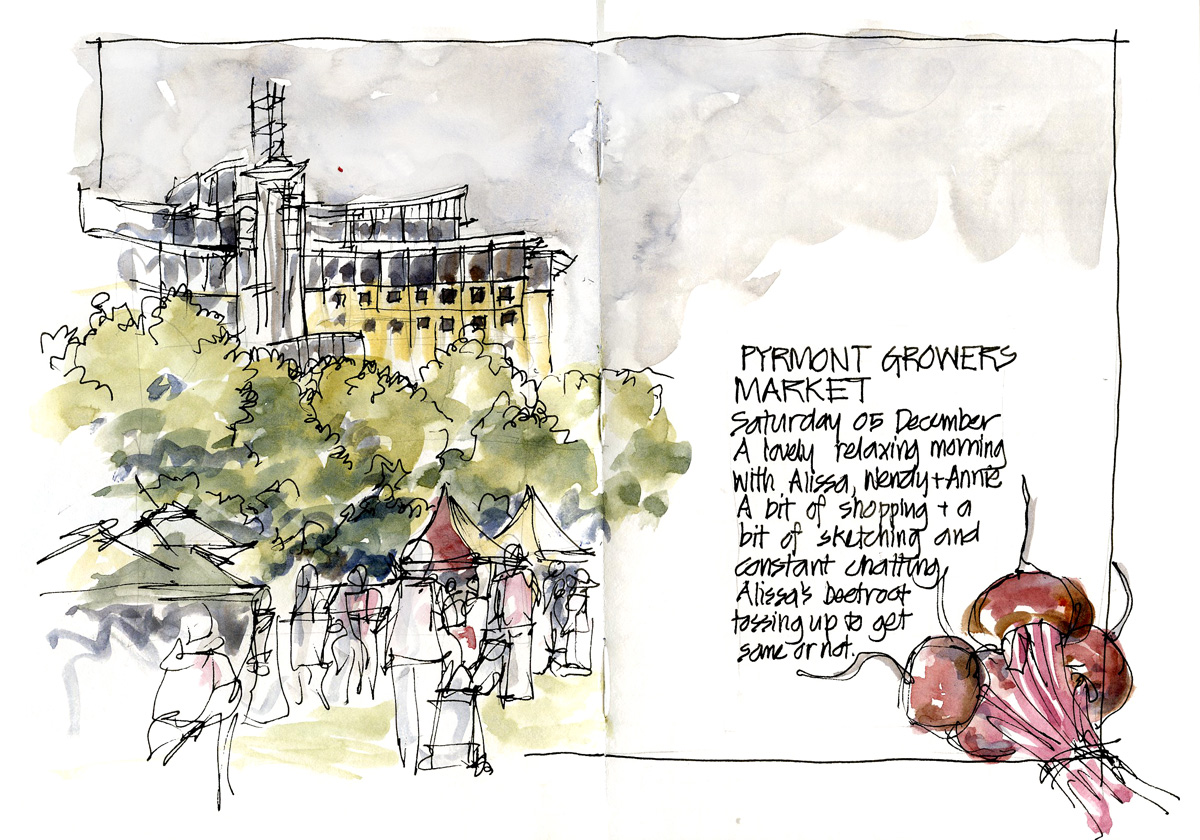 PYRMONT GROWERS
MARKET
Saturday 05 December
A lovely relaxing morning
with Alissa, Wendy + Annie
A bit of shopping + a
bit of sketching and
constant chatting
Alissa's beetroot
tossing up to get
some or not.